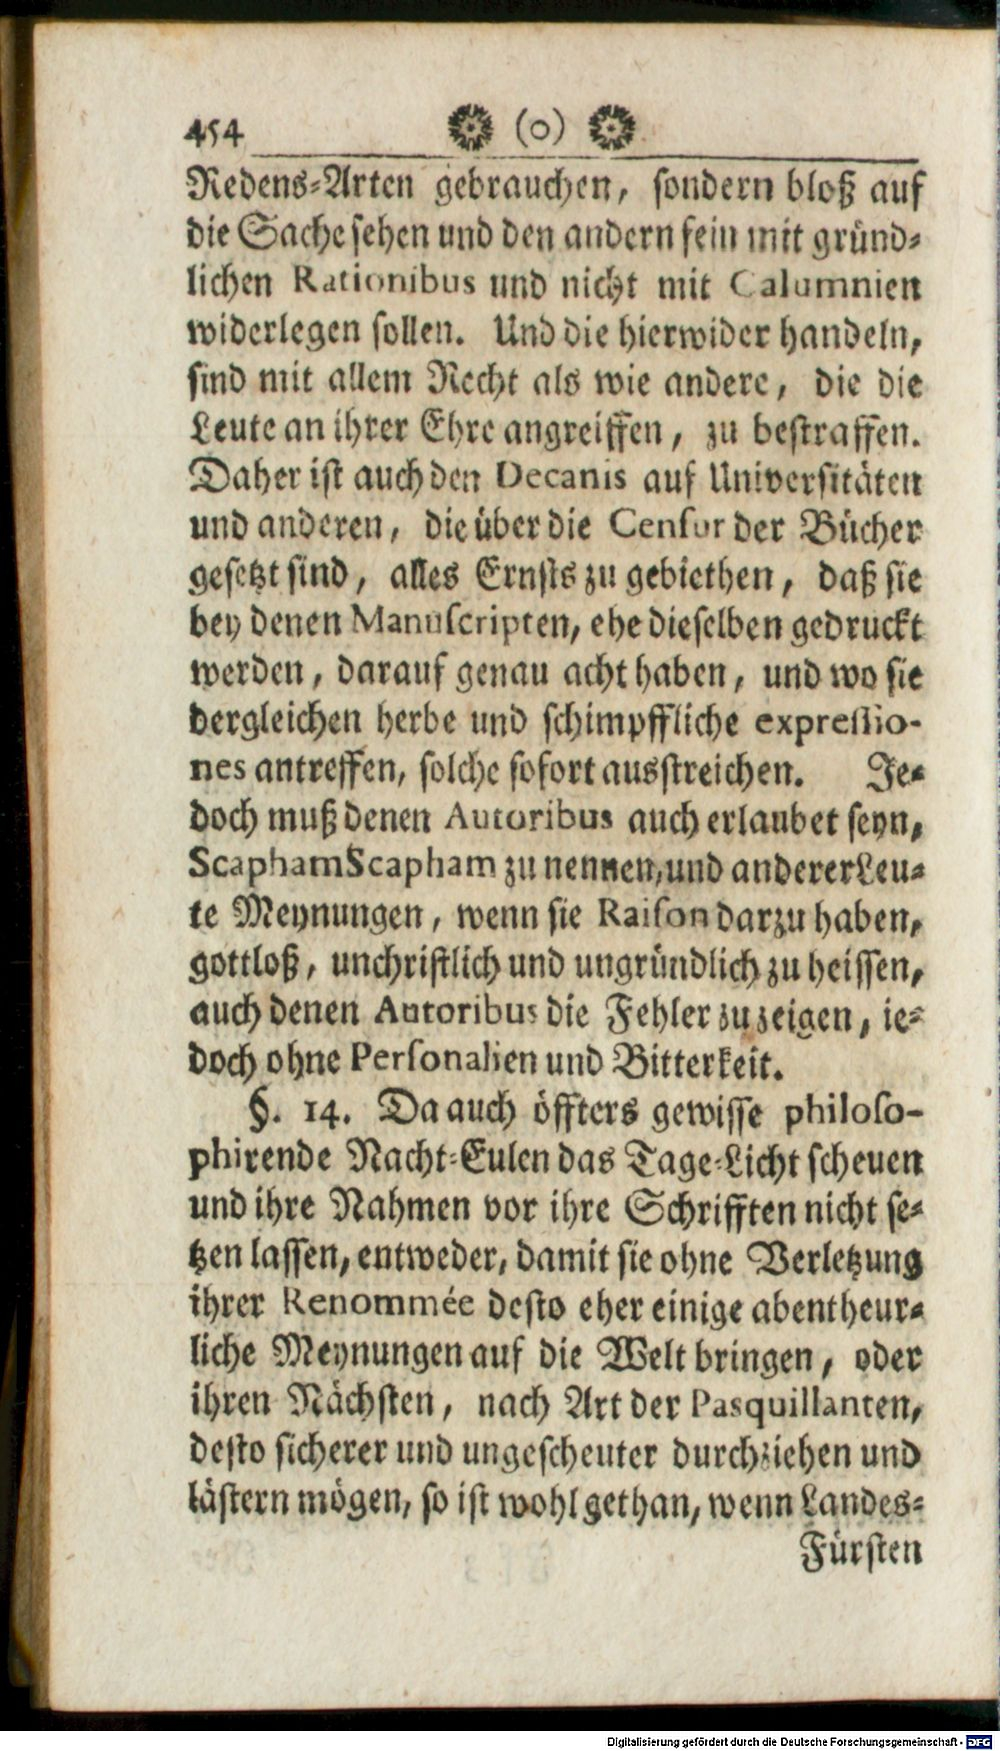 454 (o)
Redens-Arten gebrauchen, sondern bloß auf
die Sache sehen und den andern fein mit gründ-
lichen Rationibus und nicht mit Calumnien
widerlegen sollen. Und die hierwider handeln,
sind mit allem Recht als wie andere, die die
Leute an ihrer Ehre angreiffen, zu bestraffen.
Daher ist auch den Decanis auf Universitäten
und anderen, die über die Censur der Bücher
gesetzt sind, alles Ernsts zu gebiethen, daß sie
bey denen Manuscripten, ehe dieselben gedruckt
werden, darauf genau acht haben, und wo sie
dergleichen herbe und schimpffliche expressio-
nes antreffen, solche sofort ausstreichen. Je-
doch muß denen Autoribus auch erlaubet seyn,
Scapham Scapham zu nennen, und anderer Leu-
te Meynungen, wenn sie Raison darzu haben,
gottloß, unchristlich und ungründlich zu heissen,
auch denen Autoribus die Fehler zu zeigen, ie-
doch ohne Personalien und Bitterkeit.
§. 14. Da auch öffters gewisse philoso-
phirende Nacht-Eulen das Tage-Licht scheuen
und ihre Nahmen vor ihre Schrifften nicht se-
tzen lassen, entweder, damit sie ohne Verletzung
ihrer Renommée desto eher einige abentheur-
liche Meynungen auf die Welt bringen, oder
ihren Nächsten, nach Art der Pasquillanten,
desto sicherer und ungescheuter durchziehen und
lästern mögen, so ist wohl gethan, wenn Landes-
Fürsten
Digitalisierung gefördert durch die Deutsche Forschungsgemeinschaft - DFG